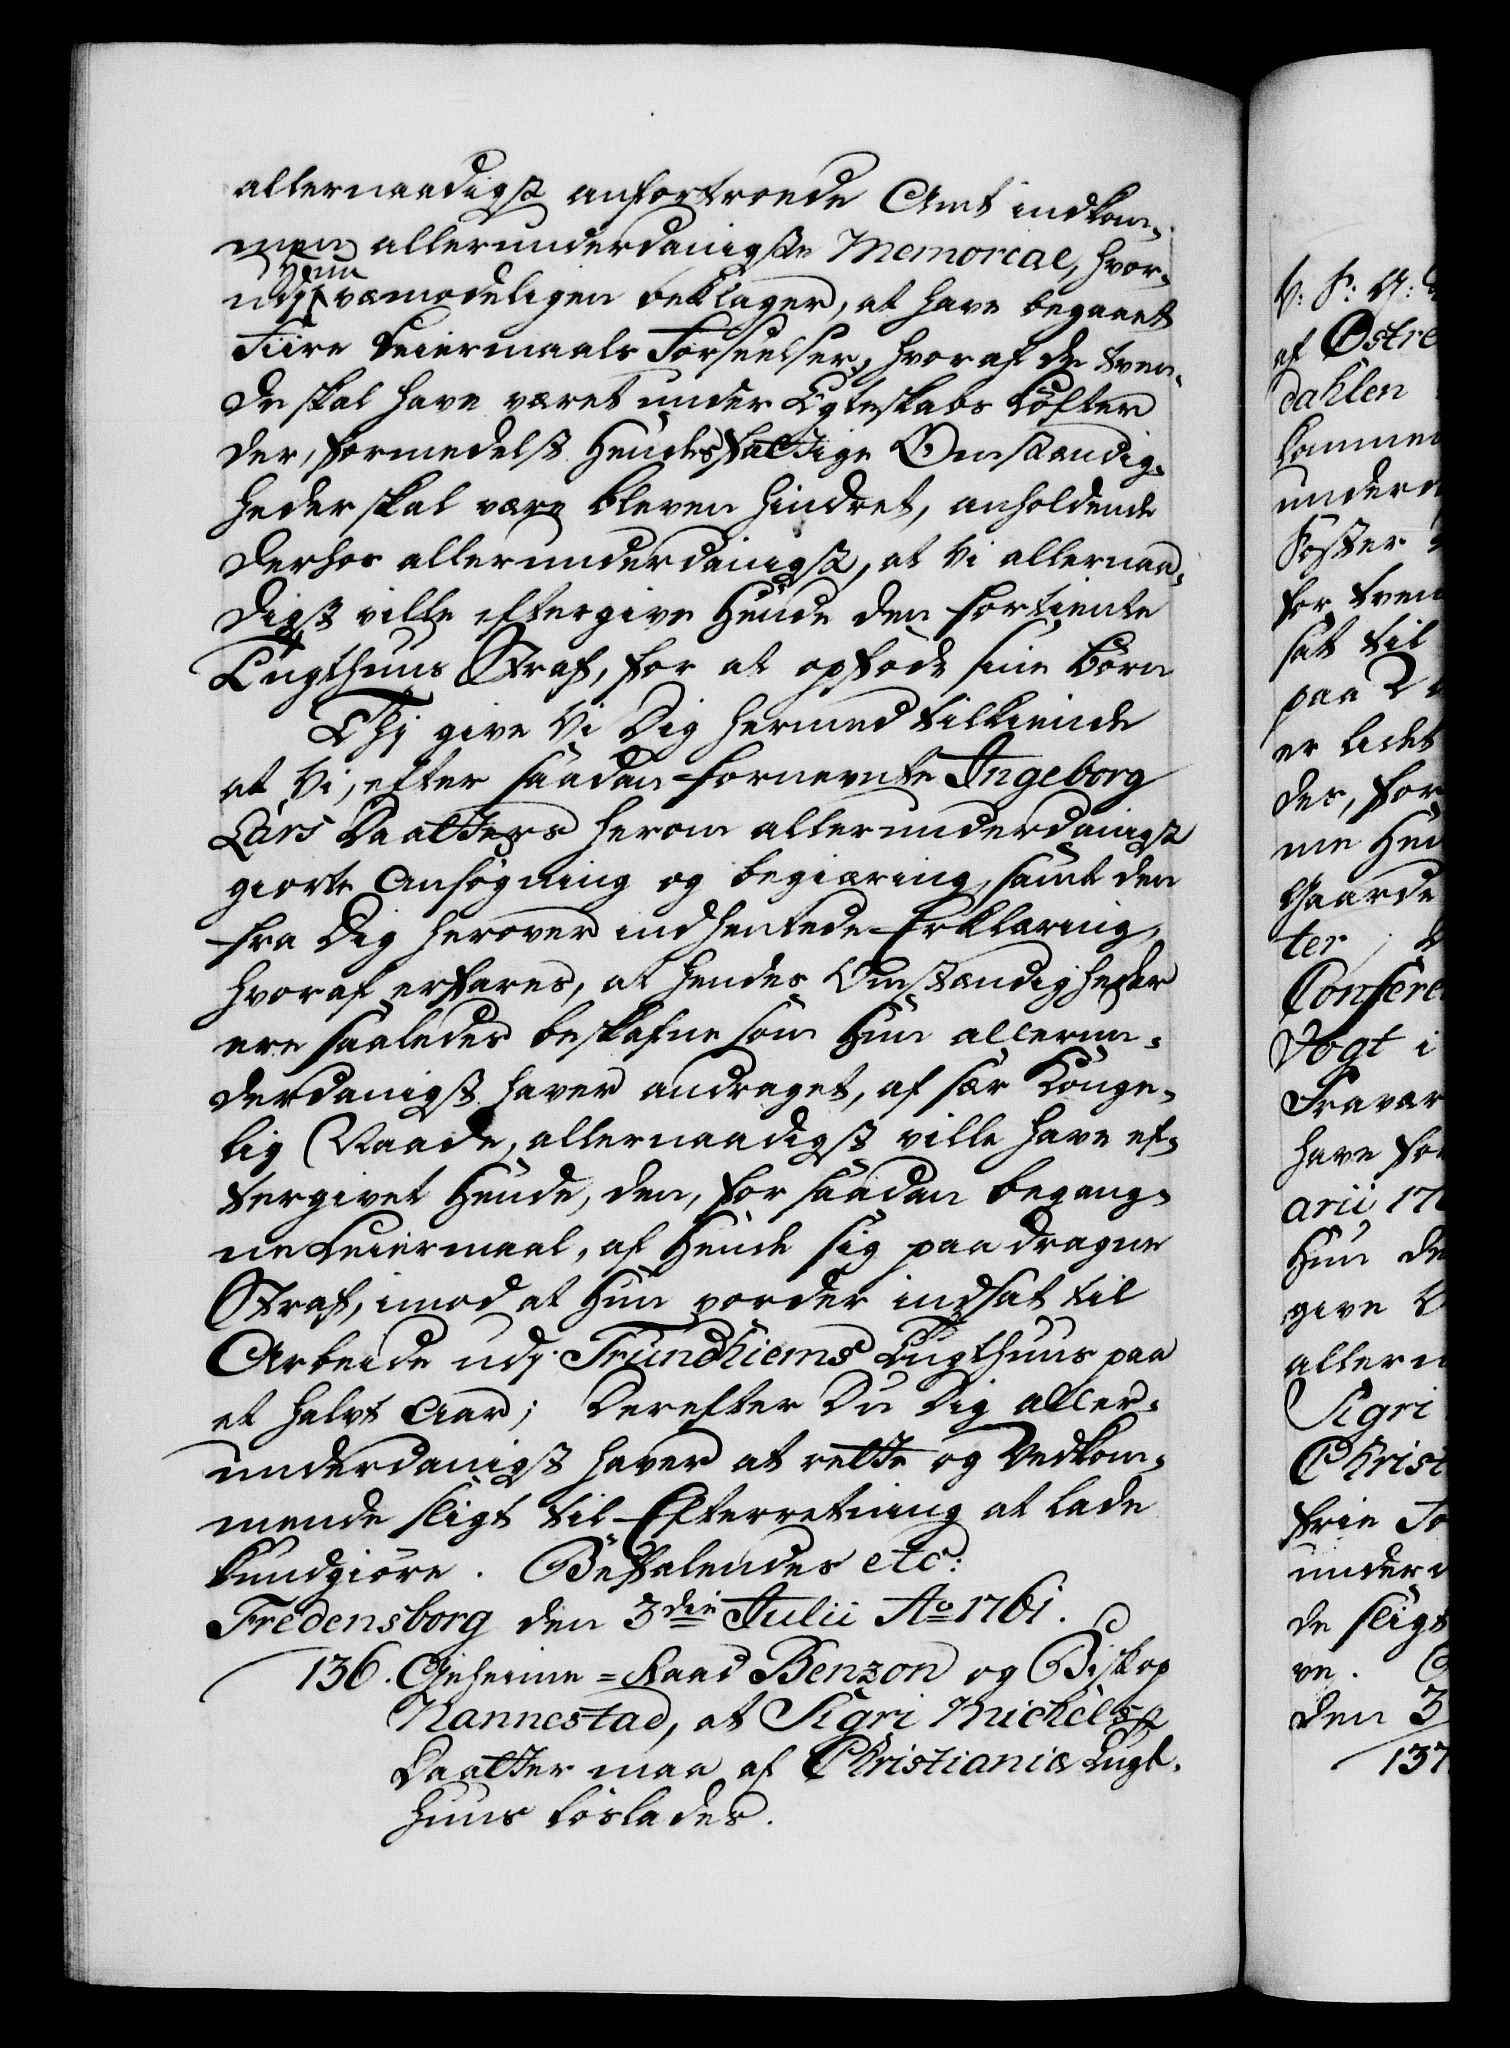 allernaadigst anfortroede Amt indkom-
men allerunderdanigste Memorial, hvor-
Hun
udj væmodeligen beklager, at have begaaet
Fiire Leiermaals Forseelser, hvoraf de tven-
de skal have været under Egteskabs Løfter
der, formedelst Hendes fattige Omstændig-
heder skal være bleven hindret, anholdende
derhos allerunderdanigst, at Vi allernaa-
digst ville eftergive Hende den fortiente
Tugthuus Straf, for at opføde sine Børn
Thj give Vi Dig hermed tilkiende
at Vi, efter saadan fornevnte Ingeborg
Lars Daatters herom allerunderdanigst
giorte Ansøgning og begiæring, samt den
fra Dig herover indhentede Erklæring,
hvoraf erfares, at hendes Omstændigheder
ere saaledes beskafne som Hun allerun-
derdanigst haver andraget, af sær Konge-
lig Naade, allernaadigst ville have ef-
tergivet Hende, den, for saadan begang-
ne Leiermaal, af Hende sig paadragne
Straf, imod at Hun vorder indsat til
Arbeide udj Trundhiems Tugthuus paa
et halvt Aar; Derefter Du Dig aller-
underdanigst haver at rette og Vedkom-
mende sligt til Efterretning at lade
kundgiøre. Befalendes etc:
Fredensborg den 3die Julii Ao 1761.
136. Geheime-Raad Benzon og Biskop
Nannestad, at Sigri Michels
Daatter maa af Christiania Tugt-
huus løslades.
V: S: G:
af Østre
dahlen
kommen
under
Foster
for tven
sat til
paa 2
er ladet
des, for
me Hen
Gaarde
ter
Confere
Vogt i
Fravær
have for
arii 17
Hun de
give V
allern
Sigri
Christ
frie Fo
under
de sligt
ve.
den 3
137